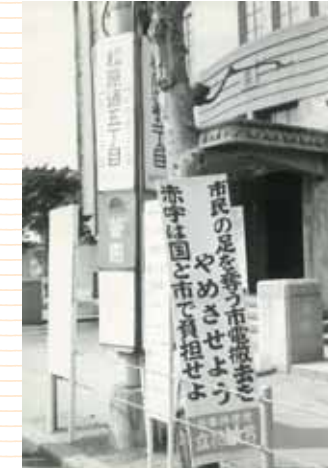 松原通五丁目
市民の足を奪う市電撤去を
やめさせよう
赤字は国と市で負担せよ